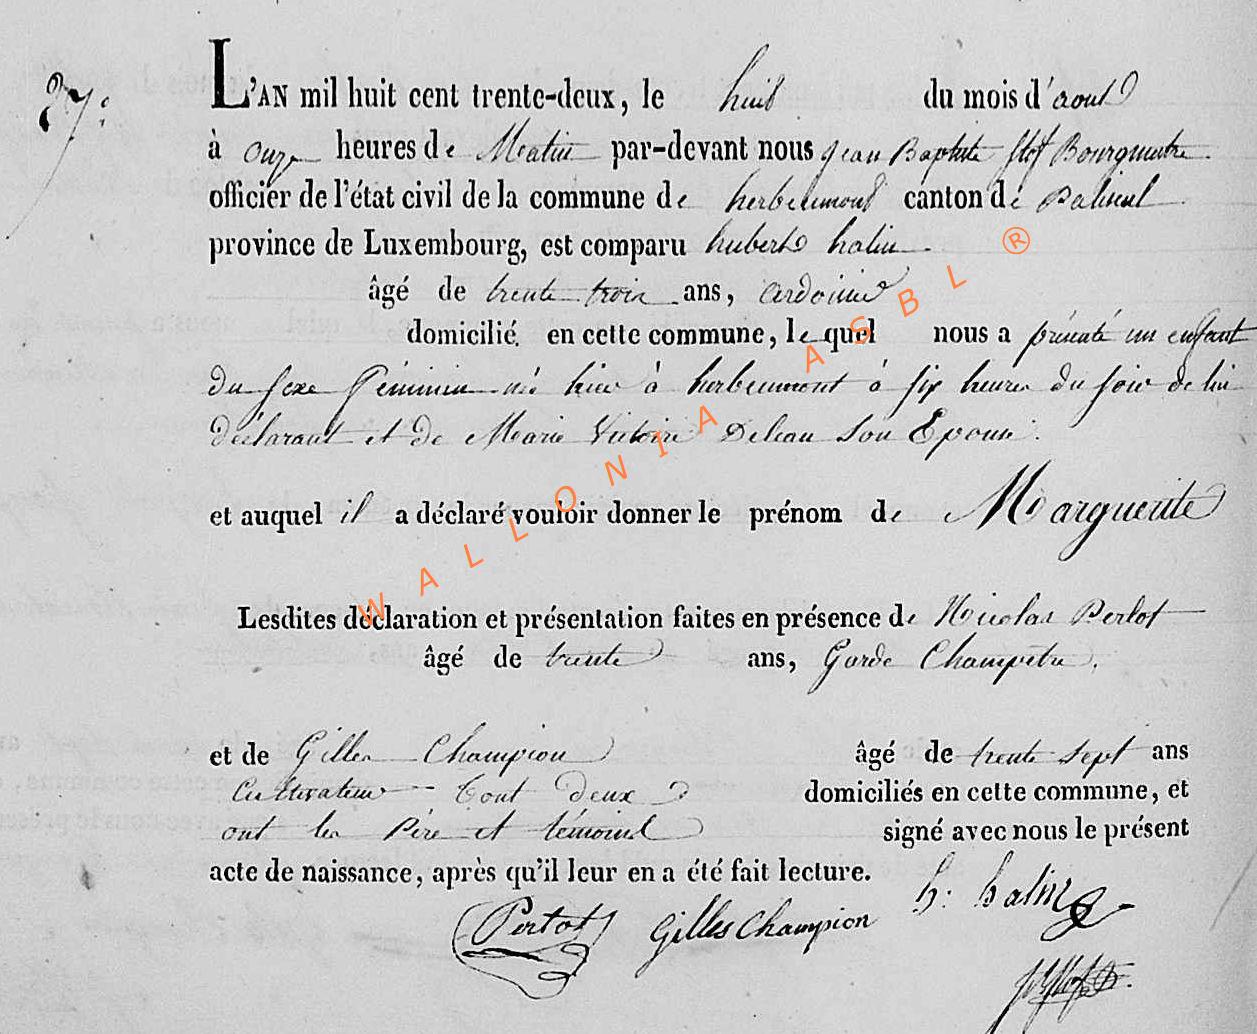 27.e
L'AN mil huit cent trente-deux, le huit du mois d'aout
à onze heures de Matin par-devant nous Jean Baptiste Bourgmestre
officier de l'état civil de la commune de herbeumont canton de Paliseul
province de Luxembourg, est comparu hubert halin
âgé de trente trois ans, ardoisier
domicilié en cette commune, lequel nous a présenté un enfant
du sexe féminin né hier à herbeumont à six heures du soir de lui
déclarant et de Marie Victoire Deleau son Epouse.
et auquel il a déclaré vouloir donner le prénom de Marguerite
Lesdites déclaration et présentation faites en présence de Nicolas Perlot
âgé de trente ans, Garde Champêtre,
et de Gilles Champion âgé de trente sept ans
Cultivateur tout deux domiciliés en cette commune, et
ont les Père et témoins signé avec nous le présent
acte de naissance, après qu'il leur en a été fait lecture.
h: halin
Perlot Gilles Champion
WALLONIA ASBL ®